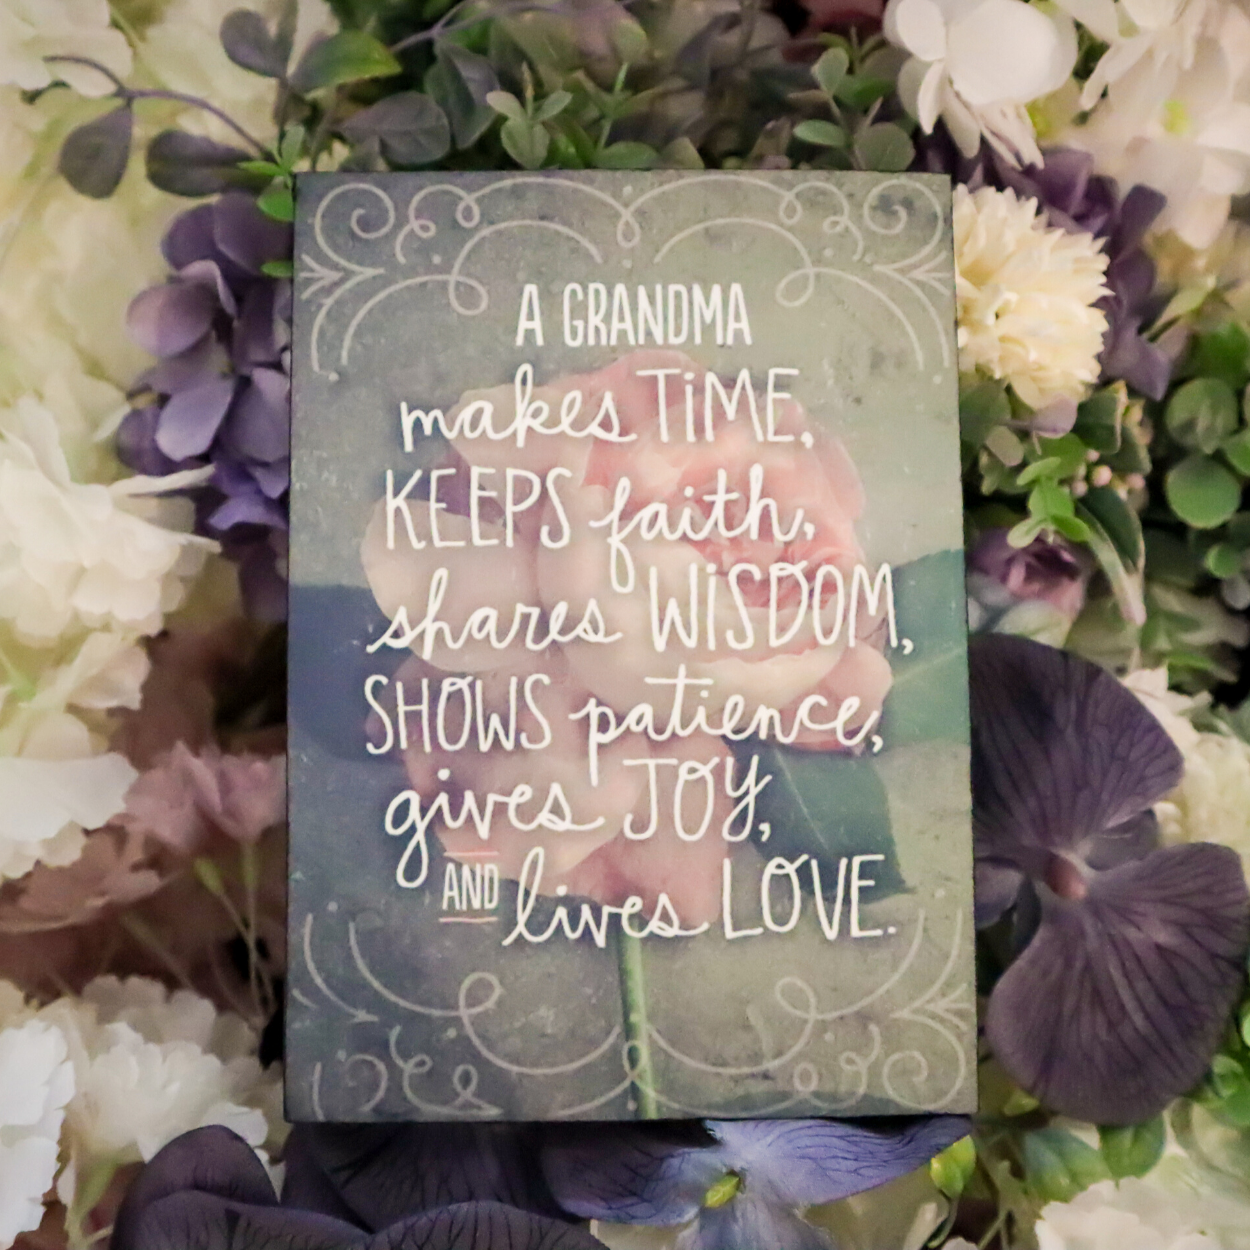 A GRANDMA
makes TiME,
KEEPS faith,
shares WiSDOM,
SHOWS patience,
gives JOy,
AND lives LOVE.